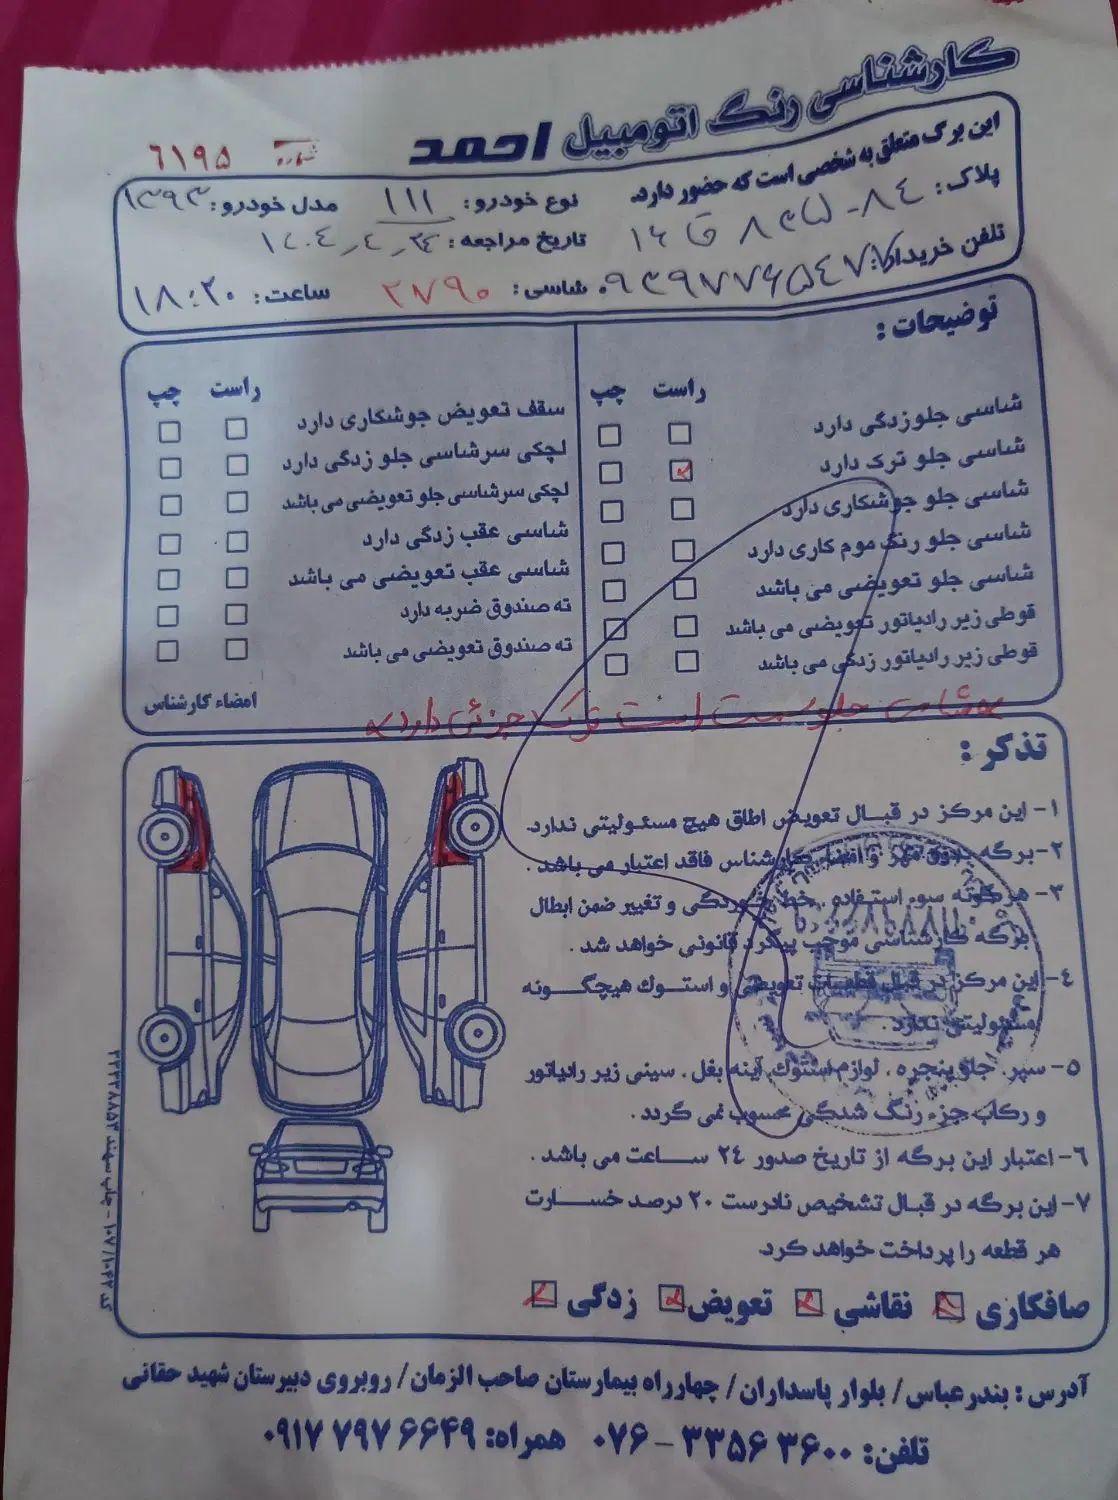 کارشناسی رنگ اتومبیل احمد
شماره ۶۱۹۵
این برگ متعلق به شخصی است که حضور دارد.
نوع خودرو: ۱۱۱
مدل خودرو: ۱۳۹۳
پلاک:
تاریخ مراجعه: ۱۴۰۴٫۴٫۲۴
تلفن خریدار:
شاسی: ۲۷۹۰
ساعت: ۱۸:۲۰
توضیحات:
راست چپ
شاسی جلو زدگی دارد
شاسی جلو ترک دارد
شاسی جلو جوشکاری دارد
شاسی جلو رنگ موم کاری دارد
شاسی جلو تعویضی می باشد
قوطی زیر رادیاتور تعویضی می باشد
قوطی زیر رادیاتور زدگی می باشد
راست چپ
سقف تعویض جوشکاری دارد
لچکی سرشاسی جلو زدگی دارد
لچکی سرشاسی جلو تعویضی می باشد
شاسی عقب زدگی دارد
شاسی عقب تعویضی می باشد
ته صندوق ضربه دارد
ته صندوق تعویضی می باشد
امضاء کارشناس
شاسی جلو سمت راست ترک جزئی دارد
تذکر:
۱- این مرکز در قبال تعویض اطاق هیچ مسئولیتی ندارد.
۲- برگه بدون مهر و امضاء کارشناس فاقد اعتبار می باشد.
۳- هرگونه سوء استفاده، خط خوردگی و تغییر ضمن ابطال
برگه کارشناسی موجب پیگرد قانونی خواهد شد.
۴- این مرکز در قبال قطعات تعویضی و استوک هیچگونه
مسئولیتی ندارد.
۵- سپر، جلو پنجره، لوازم استوک، آینه بغل، سینی زیر رادیاتور
و رکاب جزء رنگ شدگی محسوب نمی گردد.
۶- اعتبار این برگه از تاریخ صدور ۲۴ ساعت می باشد.
۷- این برگه در قبال تشخیص نادرست ۲۰ درصد خسارت
هر قطعه را پرداخت خواهد کرد.
صافکاری نقاشی تعویض زدگی
آدرس: بندرعباس/ بلوار پاسداران/ چهارراه بیمارستان صاحب الزمان/ روبروی دبیرستان شهید حقانی
تلفن: ۰۷۶-۳۳۵۶۳۶۰۰ همراه: ۰۹۱۷۷۹۷۶۶۴۹